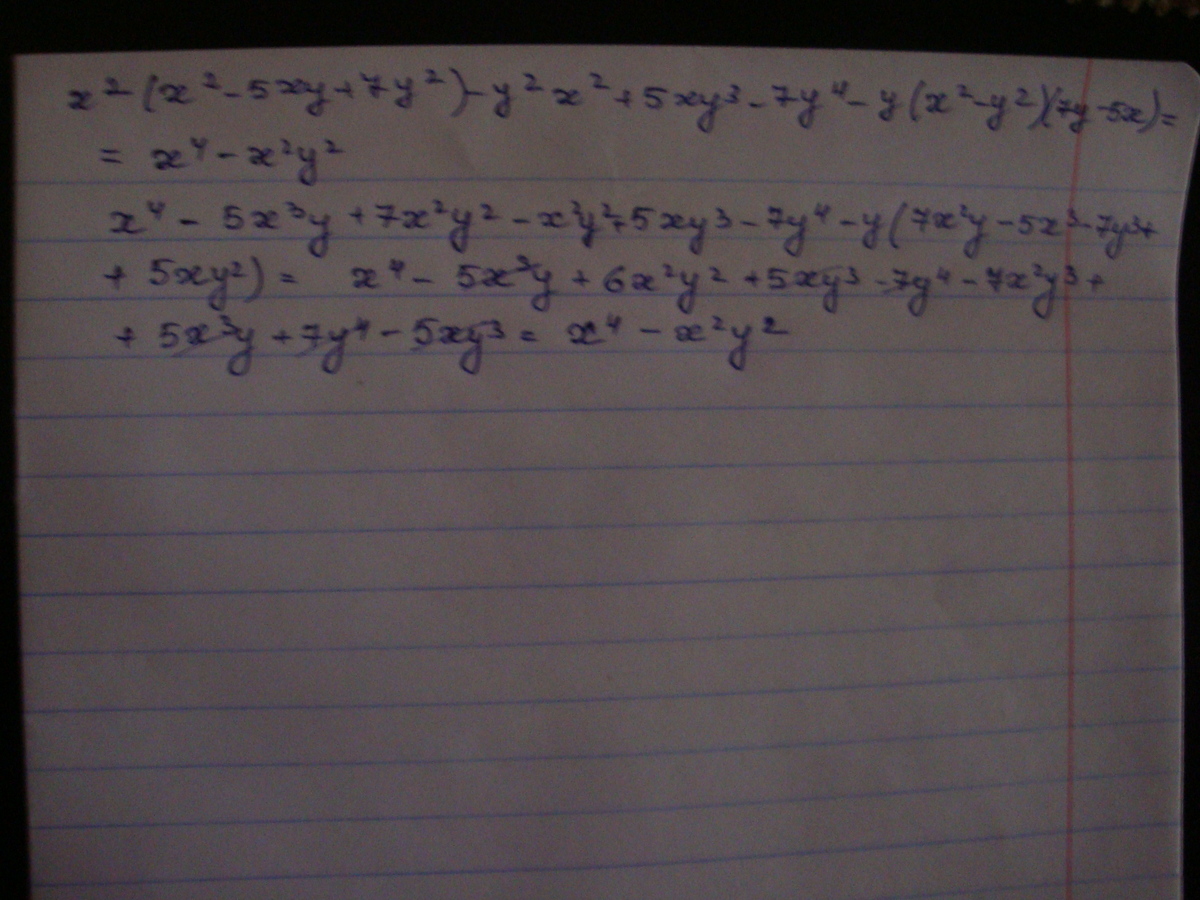 x² (x² - 5xy + 7y²) - y²x² + 5xy³ - 7y⁴ - y(x² - y²)(7y - 5x) =
= x⁴ - x²y²
x⁴ - 5x³y + 7x²y² - x²y² + 5xy³ - 7y⁴ - y(7x²y - 5x³ - 7y³ +
+ 5xy²) = x⁴ - 5x³y + 6x²y² + 5xy³ - 7y⁴ - 7x²y³ +
+ 5x³y + 7y⁴ - 5xy³ = x⁴ - x²y²